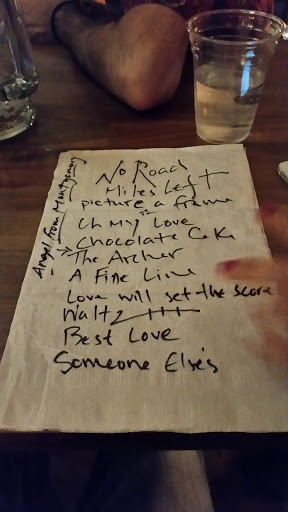 No Road
Miles Left
picture a frame
Oh My Love
Chocolate Cake
The Archer
A Fine Line
Love will set the score
Waltz
Best Love
Someone Else's
Angel from Montgomery